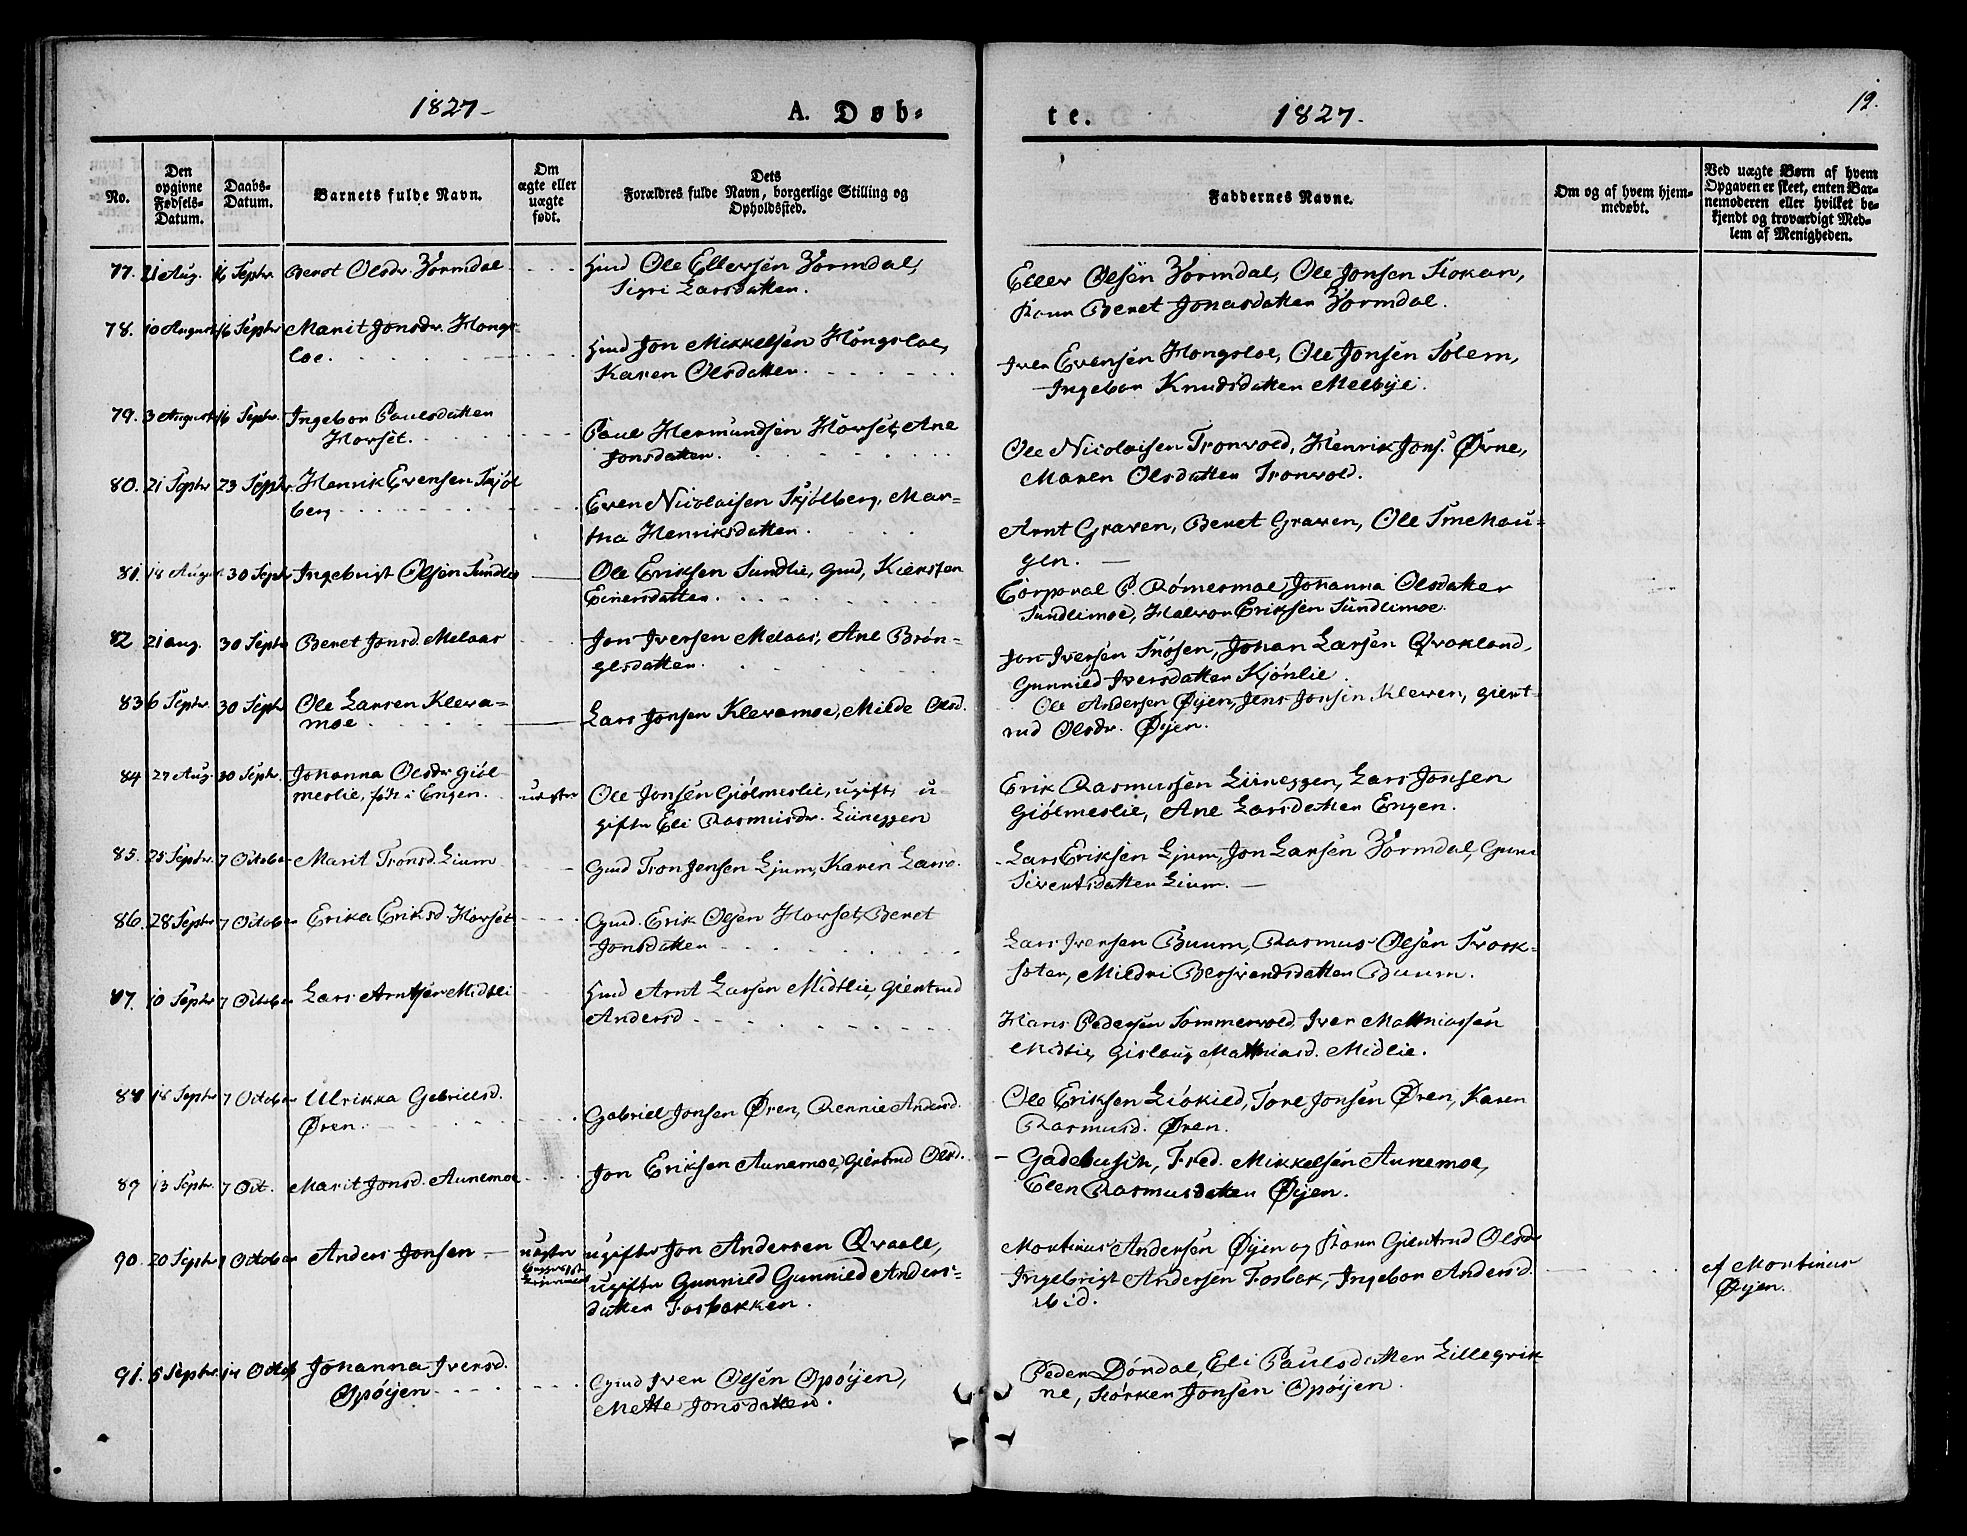 1827-
A. Døb-
te.
1827.
12.
No.
Den opgivne Fødsels-Datum.
Daabs-Datum.
Barnets fulde Navn.
Om ægte eller uægte født.
Dets
Forældres fulde Navn, borgerlige Stilling og
Opholdssted.
Faddernes Navne.
Om og af hvem hjem-
medøbt.
Ved uægte Børn af hvem
Opgaven er skeet, enten Bar-
nemoderen eller hvilket be-
kjendt og troværdigt Med-
lem af Menigheden.
77. 21 Aug. 16 Septr. Beret Olsdr. Vormdal
Gmd Ole Ellevsen Vormdal,
Sigri Larsdatter.
Ellev Olsen Vormdal, Ole Jonsen Stokan,
Kone Beret Jonasdatter Vormdal.
78. 10 August 16 Septr Marit Jonsdr. Hongs-
loe.
Gmd Jon Mikkelsen Hongsloe,
Karen Olsdatter.
Iver Evensen Hongsloe, Ole Jonsen Solem,
Ingebor Knudsdatter Melbye.
79. 3 August 16 Septr. Ingebor Paulsdatter
Horset.
Paul Hermundsen Horset, Ane
Jonsdatter.
Ole Nicolaisen Tronvold, Henrik Jons. Ørne,
Maren Olsdatter Tronvold.
80. 21 Septr 23 Septr. Henrik Evensen Skjøl
berg
Even Nicolaisen Skjølberg, Mar-
tha Henriksdatter.
Arnt Graven, Beret Graven, Ole Smehau-
gen.
81. 18 August 30 Septr Ingebrigt Olsen Sundlie
Ole Eriksen Sundlie, Gmd, Kiersten
Einersdatter.
Corporal P. Rømesmoe, Johanna Olsdatter
Sundlimoe, Halvor Eriksen Sundlimoe.
82 21 aug. 30 Septr Beret Jonsd. Melaas
Jon Iversen Melaas, Ane Brøn-
gelsdatter.
Jon Iversen Snøsen, Johan Larsen Qvakland,
Gunnild Iversdatter Kjønlie.
83 6 Septr. 30 Septr Ole Larsen Kleva-
moe
Lars Jonsen Klevamoe, Milde Olsd.
Ole Andersen Øyen, Jens Jonsen Kleven, Giert-
rud Olsdr. Øyen.
84 27 Aug. 30 Septr. Johanna Olsdr Giøl-
meslie, født i Engen.
uægte
Ole Jonsen Giølmeslie, ugift, u-
gifte Eli Rasmusdr. Liineggen
Erik Rasmussen Liineggen, Lars Jonsen
Giølmeslie, Ane Larsdatter Engen.
85. 25 Septr. 7 October Marit Tronsd. Lium
Gmd Tron Jensen Ljum, Karen Larsd.
Lars Eriksen Ljum, Jon Larsen Vormdal, Guru
Siverstdatter Lium.
86. 28 Septr 7 October Erika Eriksd. Horset
Gmd. Erik Olsen Horset, Beret
Jonsdatter
Lars Iversen Buum, Rasmus Olsen Svork-
soter, Mildri Bersvendsdatter Buum.
87. 10 Septr 7 October Lars Arntsen Midtli
Gmd Arnt Larsen Midtlie, Giertrud
Andersd
Hans Pedersen Sommervold, Iver Mathiassen
Midtlie, Gislaug Mathiasd. Midlie.
88 18 Septr 7 October Ulrikka Gabrielsd.
Øren.
Gabriel Jonsen Øren, Rennie Andersd.
Ole Eriksen Liøkild, Tore Jonsen Øren, Karen
Rasmusd. Øren.
89 13 Septr. 7 Oct. Marit Jonsd. Aunemoe
Jon Eriksen Aunemoe, Giertrud Olsd.
Gadebusch, Fred. Mikkelsen Aunemoe,
Elen Rasmusdatter Øyen.
90. 20 Septr 7 October Anders Jonsen
uægte
ugifte Jon Andersen Qvaale,
ugifte Gunnild Gunnild Anders-
datter Fosbakken.
Mortinus Andersen Øyen og Kone Giertrud Olsdr
Ingebrigt Andersen Fosbak, Ingebor Andersd.
ibid.
af Mortinus
Øyen.
91. 5 Septr. 14 Octob Johanna Iversd.
Opøyen
Gmd Iver Olsen Opøyen,
Mette Jonsdatter.
Peder Dørdal, Eli Paulsdatter Lillegrik
ne, Størker Jonsen Opøyen.